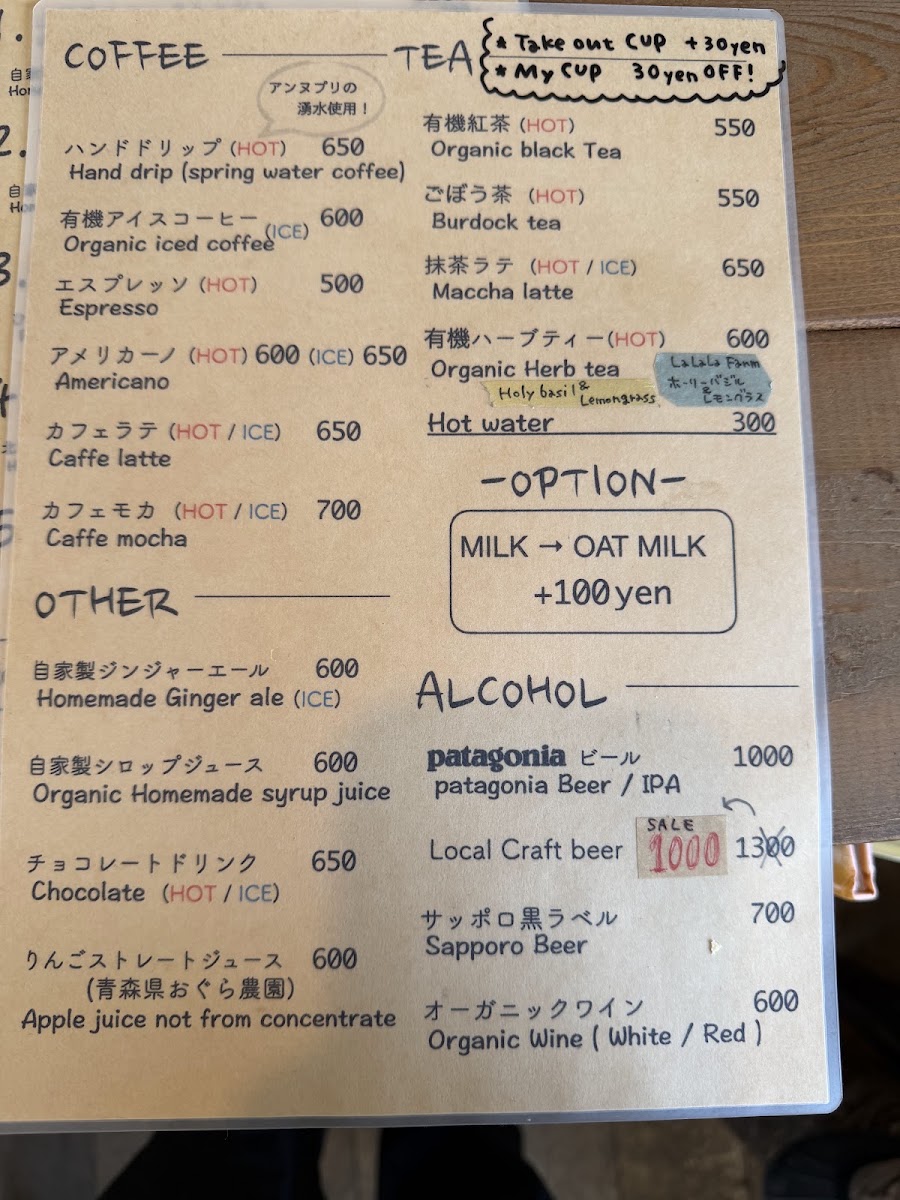 COFFEE
アンヌプリの
湧水使用！
ハンドドリップ (HOT) 650
Hand drip (spring water coffee)
有機アイスコーヒー (ICE) 600
Organic iced coffee
エスプレッソ (HOT) 500
Espresso
アメリカーノ (HOT) 600 (ICE) 650
Americano
カフェラテ (HOT / ICE) 650
Caffe latte
カフェモカ (HOT / ICE) 700
Caffe mocha
OTHER
自家製ジンジャーエール 600
Homemade Ginger ale (ICE)
自家製シロップジュース 600
Organic Homemade syrup juice
チョコレートドリンク 650
Chocolate (HOT / ICE)
りんごストレートジュース 600
(青森県おぐら農園)
Apple juice not from concentrate
TEA
* Take out CUP +30yen
* My CUP 30yen OFF!
有機紅茶 (HOT) 550
Organic black Tea
ごぼう茶 (HOT) 550
Burdock tea
抹茶ラテ (HOT / ICE) 650
Maccha latte
有機ハーブティー(HOT) 600
Organic Herb tea
Holy basil &
Lemongrass
LaLaLa Farm
ホーリーバジル
&
レモングラス
Hot water 300
-OPTION-
MILK → OAT MILK
+100yen
ALCOHOL
patagonia ビール 1000
patagonia Beer / IPA
SALE
Local Craft beer 1000 1300
サッポロ黒ラベル 700
Sapporo Beer
オーガニックワイン 600
Organic Wine ( White / Red )